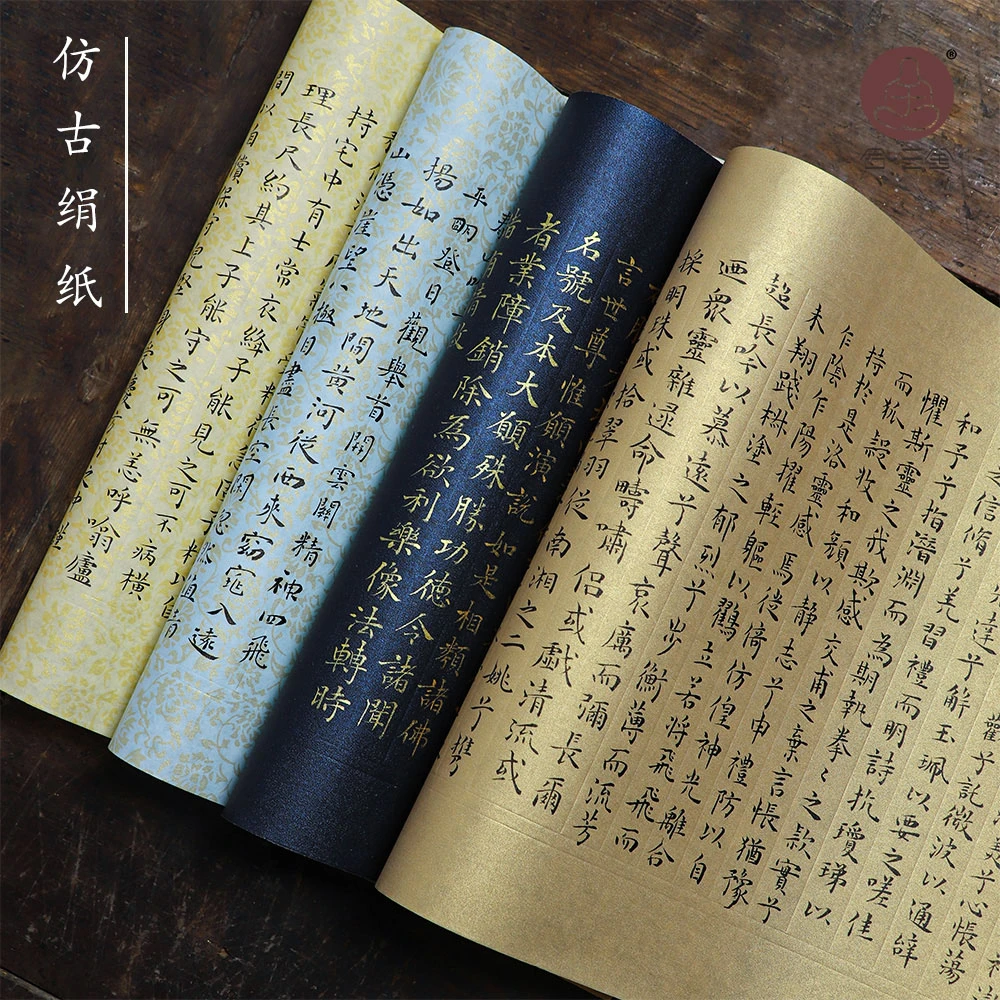 仿古绢纸
美兮心悵蕩
歡兮託微波以通辭
解玉珮以要之嗟佳
信脩兮羌習禮而明詩抗瓊珶以
和子兮指潛淵而為期執拳〻之款實兮
懼斯靈之我欺感交甫之棄言悵猶豫
而狐疑收和顏以静志兮申禮防以自
持於是洛靈感焉徙倚仿偟神光離合
乍陰乍陽擢輕軀以鶴立若將飛飛而
未翔踐椒塗之郁烈兮步蘅薄而流芳
超長吟以慕遠兮聲哀厲而彌長爾
迺衆靈雜遝命疇嘯侶或戲清流或
採明珠或拾翠羽從南湘之二姚兮攜
言世尊惟願演説如是相類諸佛
名號及本大願殊勝功德令諸聞
者業障銷除為欲利樂像法轉時
平明登日觀舉首開雲關精神四飛
揚如出天地間黄河從西來窈窕入遠
山憑崖望八極目盡長空閑
持宅中有士常衣絳子能見之可不病横
理長尺約其上子能守之可無恙呼噏廬
間以自